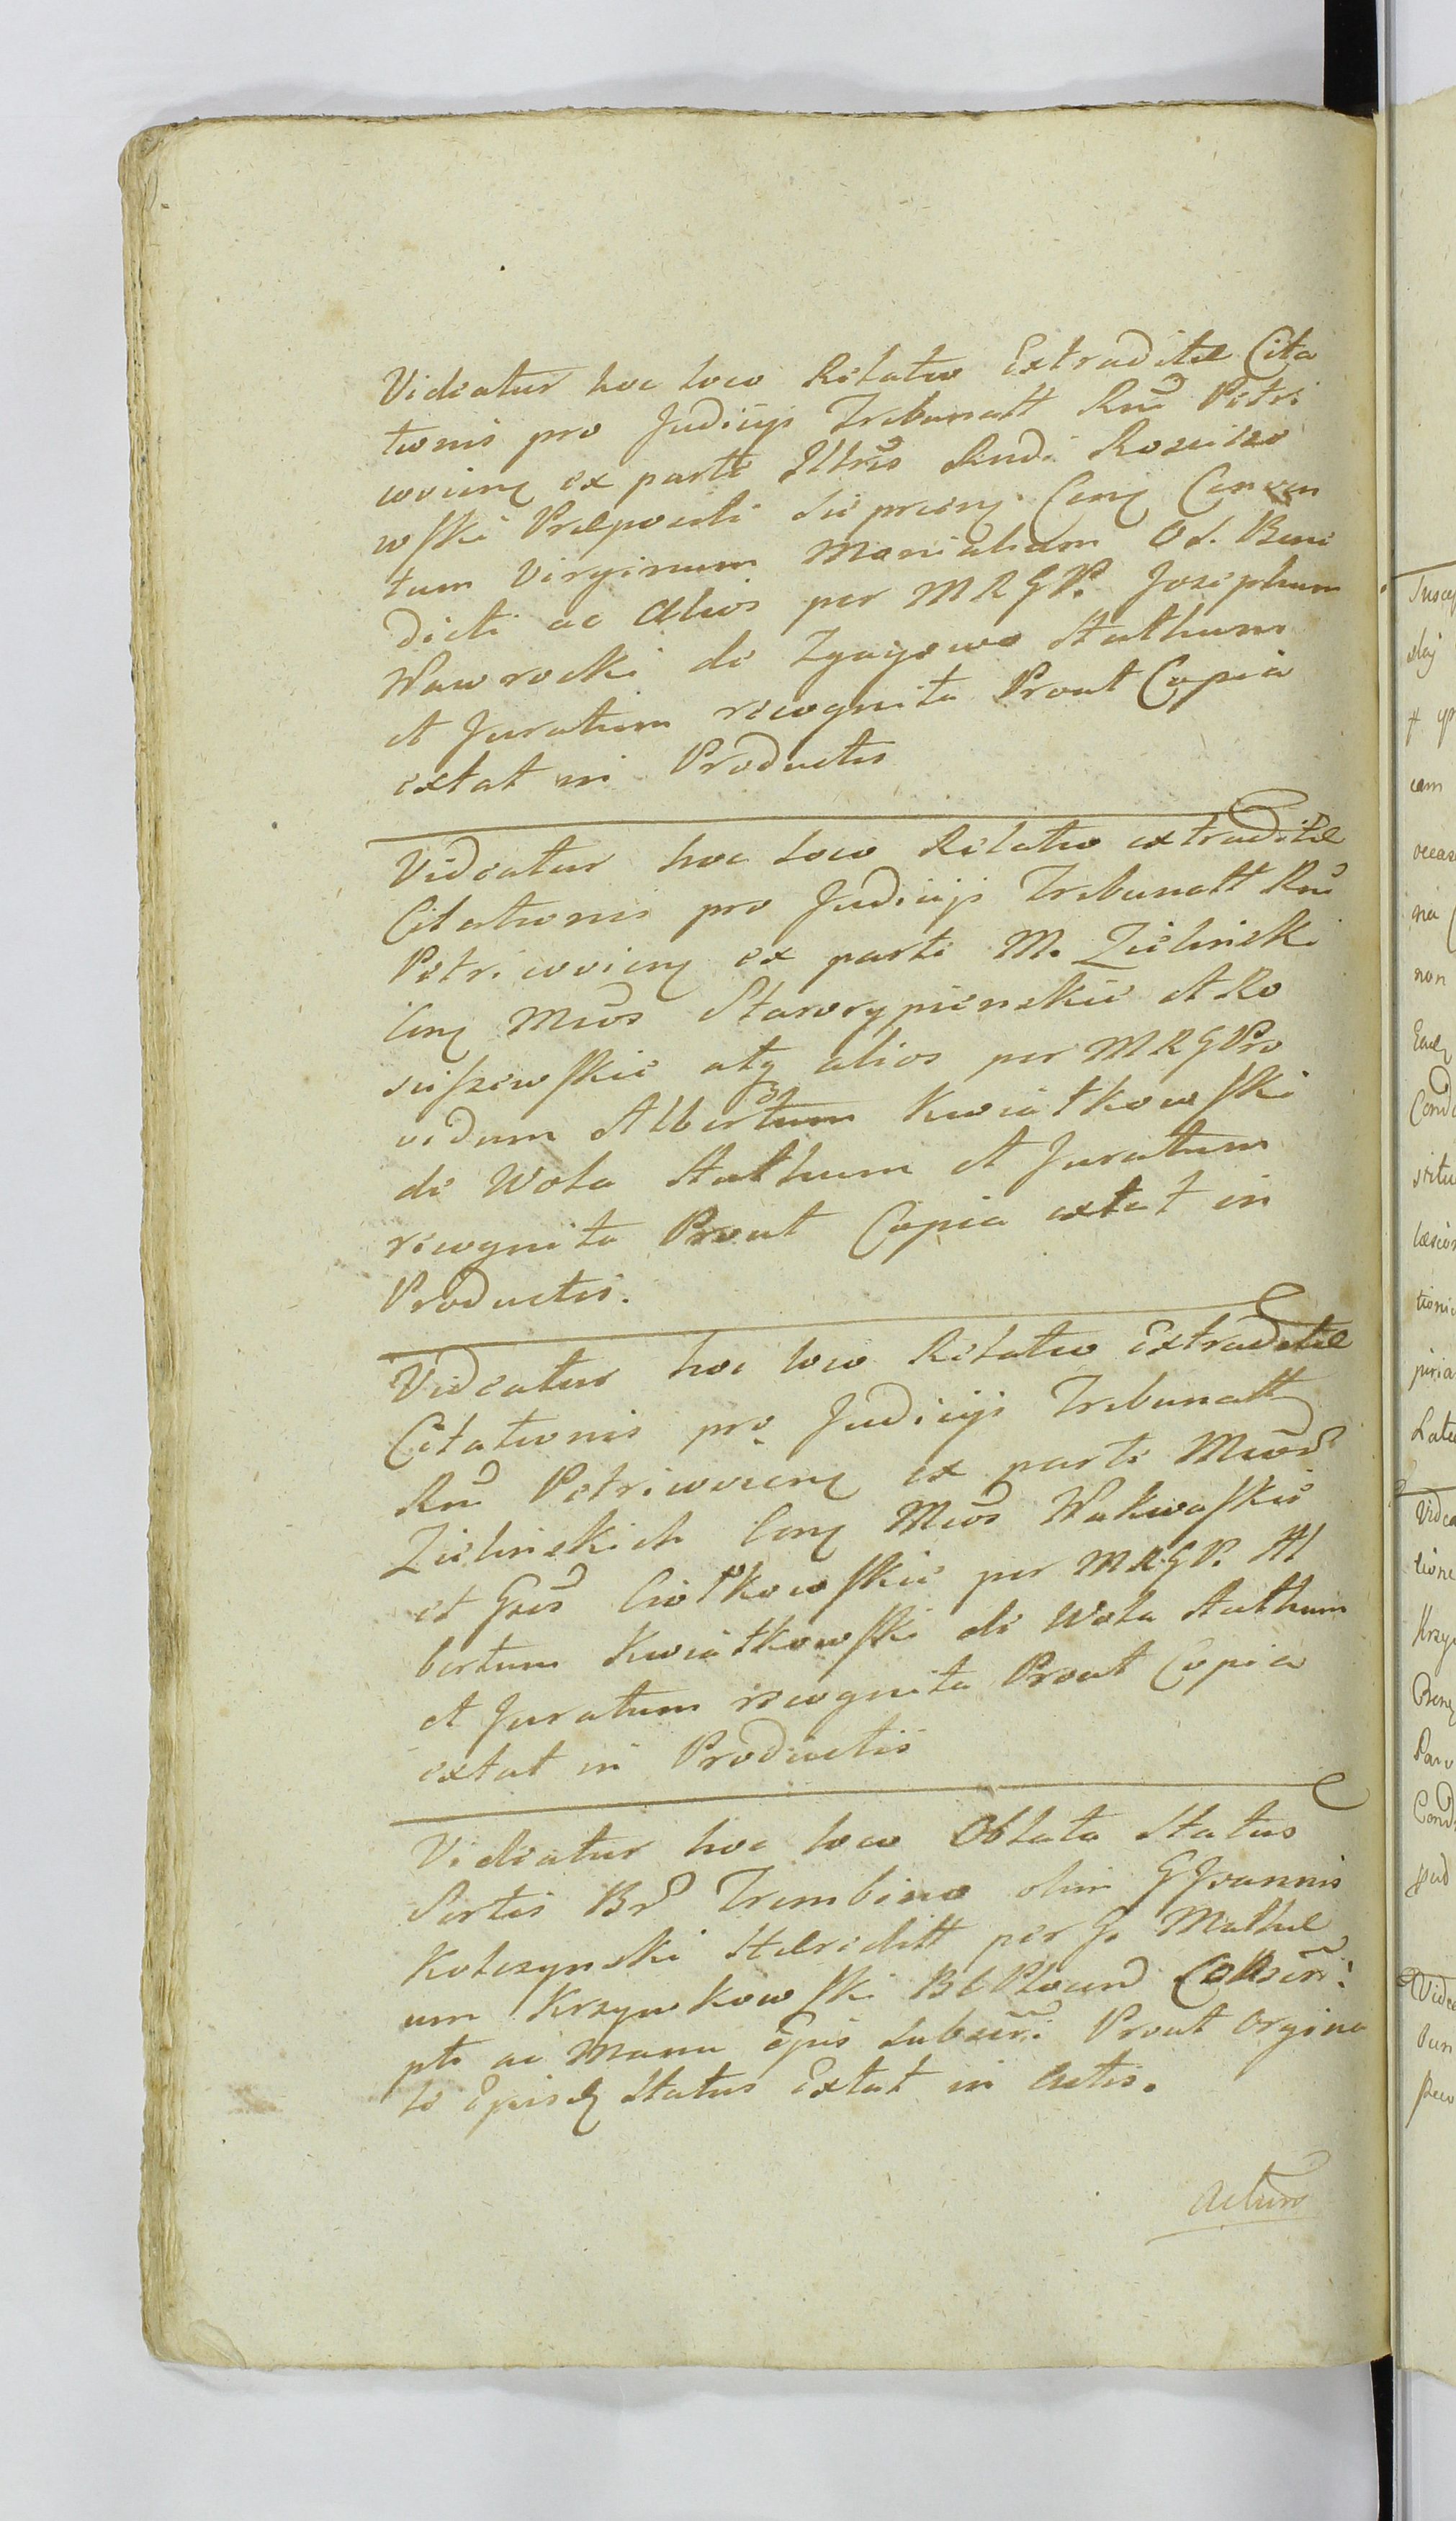 Videatur hoc loco Relatio Extraditæ Cita
tionis pro Judicijs Tribunatt Rni Petri
covien ex parte Illris Rndi Rosciszo
wski Præpositi Sieprcen Con Conven
tum Virginum Monialium Od. Bene
dicti ac Alios per MRGP. Josephum
Nawrocki de Zgagowo Stathum
et Juratum recognita Prout Copia
extat in Productis
Videatur hoc loco Relatio extraditæ
Citationis pro Judicijs Tribunatt Rni
Petricovien ex parte M. Zielinski
Con Mcos Starorypienskie et Ro
sciszewskie atq alios per MRGPro
vidum Albertum Kwiatkowski
de Wola Stathum et Juratum
recognita Prout Copia extat in
Productis.
Videatur hoc loco Relatio Extraditæ
Citationis pro Judicijs Tribunatt
Rni Petricovien ex parte Mcor
Zielinskich Con Mcos Wakwaskie
et Gsos Ciołkowskie per MRGP. Al
bertum Kwiatkowski de Wola Stathum
et Juratum recognita Prout Copia
extat in Productis
Videatur hoc loco Oblata Status
Sortis Br Trembino olim GJoannis
Kolczynski Hæreditt per G. Mathæ
um Krzynkowski BCPlocen Conscri
pti ac Manu Ejus Subscri Prout Orgina
le Ejusd Status Extat in Actis.
Actum